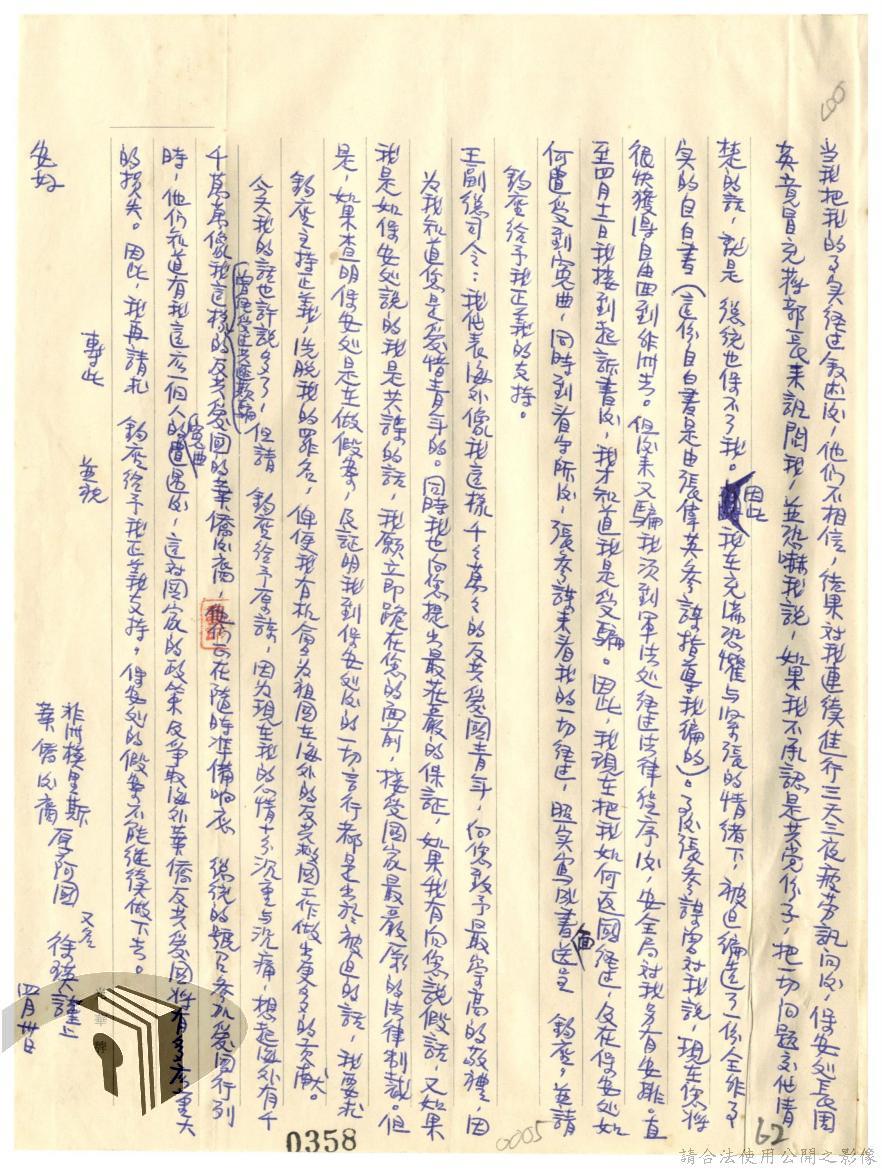 當我把我的事實經过敘述后，他们不相信，結果对我連續進行三天三夜疲劳訊问后，保安処長周
英竟冒充蔣部長来訊問我，並恐嚇我説，如果我不承認是共党份子，把一切问題交代清
楚的話，就是　总統也保不了我。因此我在充滿恐懼与緊張的情緒下，被迫編造了一份全非事
实的自白書（這份自白書是由張偉英參謀指導我編的）。事后張參謀曾对我說，現在您將
很快獲得自由回到非洲去。但后来又騙我须到軍法処経过法律程序后，安全局对我另有安排。直
至四月十二日我接到起訴書后，我才知道我是受騙。因此，我現在把我如何返國経过，及在保安処如
何遭受到冤曲，同時到看守所后，張參謀来看我的一切経过，照实寫此書面送呈　鈞座，並請
鈞座给予我正義的支持。
王副總司令：我代表海外像我這樣千千萬萬的反共愛國青年，向您致予最崇高的敬禮，因
为我知道您是愛惜青年的。同時我也向您提出最莊嚴的保証，如果我有向您說假話，又如果
我是如保安処說的我是共諜的話，我願立即跪在您的面前，接受國家最嚴厲的法律制裁。但
是，如果查明保安処是在做假案，及証明我到保安処后的一切言行都是出於被迫的話，我要求
鈞座主持正義，洗脱我的罪名，俾便我有机會为祖国在海外的反共救国工作做出更多的贡献。
今天我的話也許說多了，但請　鈞座给予原諒，因为現在我的心情十分沉重与沉痛，想起海外有千
千萬萬像我這樣的反共愛國的華僑后裔，可在隨時准備响应　總统的號召參加愛国行列
時，他们知道有我這应一個人的冤曲遭遇后，這对国家的政策及爭取海外華僑反共愛国將有多应重大
的損失。因此，我再請求　鈞座给予我正義支持，保安処的假案不能継續做下去。
專此　並祝
安好
非洲模里斯
華僑后裔　厚阿國　又名　徐瑛　謹上
四月卅日
0358
0005
62
請合法使用公開之影像